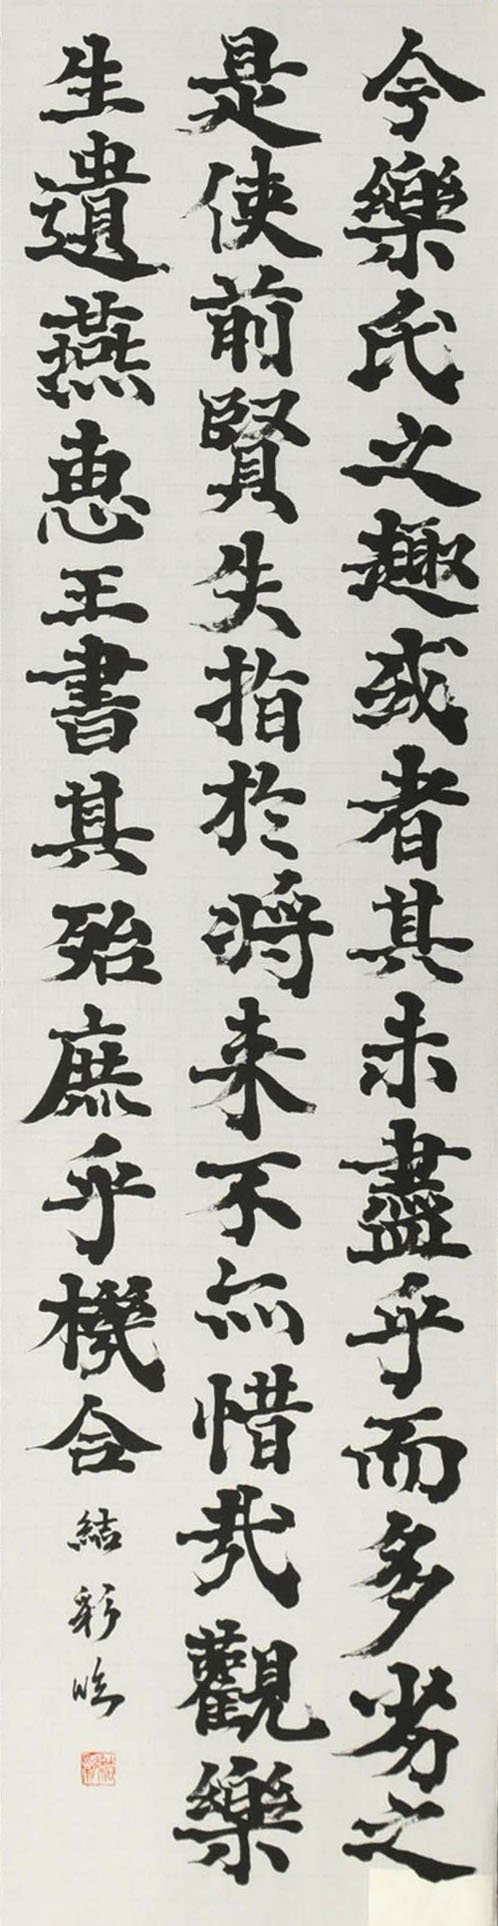 今樂氏之趣或者其未盡乎而多劣之
是使前賢失指於將来不亦惜哉觀樂
生遺燕惠王書其殆庶乎機合 結彩臨